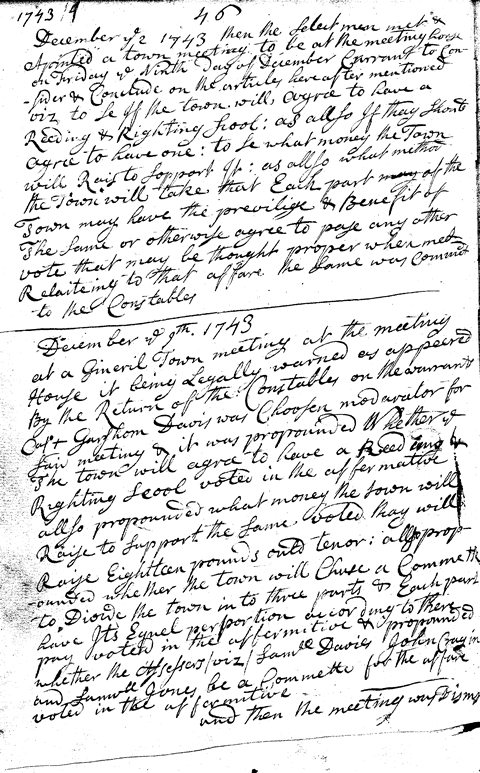 1743/4
46
December ye 2 1743 then the Select men met &
apointed a town meeting to be at the meeting house
on Friday ye Ninth Day of December Currant to Con-
-sider & Conclude on the articles hereafter mentioned
viz to Se If the town will agree to have a
Reeding & Righting Scool: as allso If thay Should
agree to have one: to Se what money the Town
will Rais to Support It: as allso what method
the Town will take that Each part of the
Town may have the previlige & Benefit of
The Same or otherwise agree to pass any other
vote that may be thought proper when met
Relaiteing to that affare the Same was Commit
to the Constables
December ye 9th. 1743
at a Gineril Town meeting at the meeting
House it being Legally warned as appeared
By the Return of the Constables on the warrants
Capt Garshom Davis was Choosen modarator for
Said meating & it was propounded Whether ye
The town will agree to have a Reeding &
Righting Scool voted in the affermative
allso propounded what money the town will
Raise to Support the Same. voted thay will
Raise Eighteen pounds ould tenor: allso prop-
ounded whether the town will Chuse a Committe
to Divide the town in to three parts & Each part
have Its Equel perportion according to their
pay voted in the affermitive & propounded
whether the Assessers/viz/Samll Davies John
and Samuell Jones be a Committe for the affare
voted in the affermitive
and then the meeting was Dismis